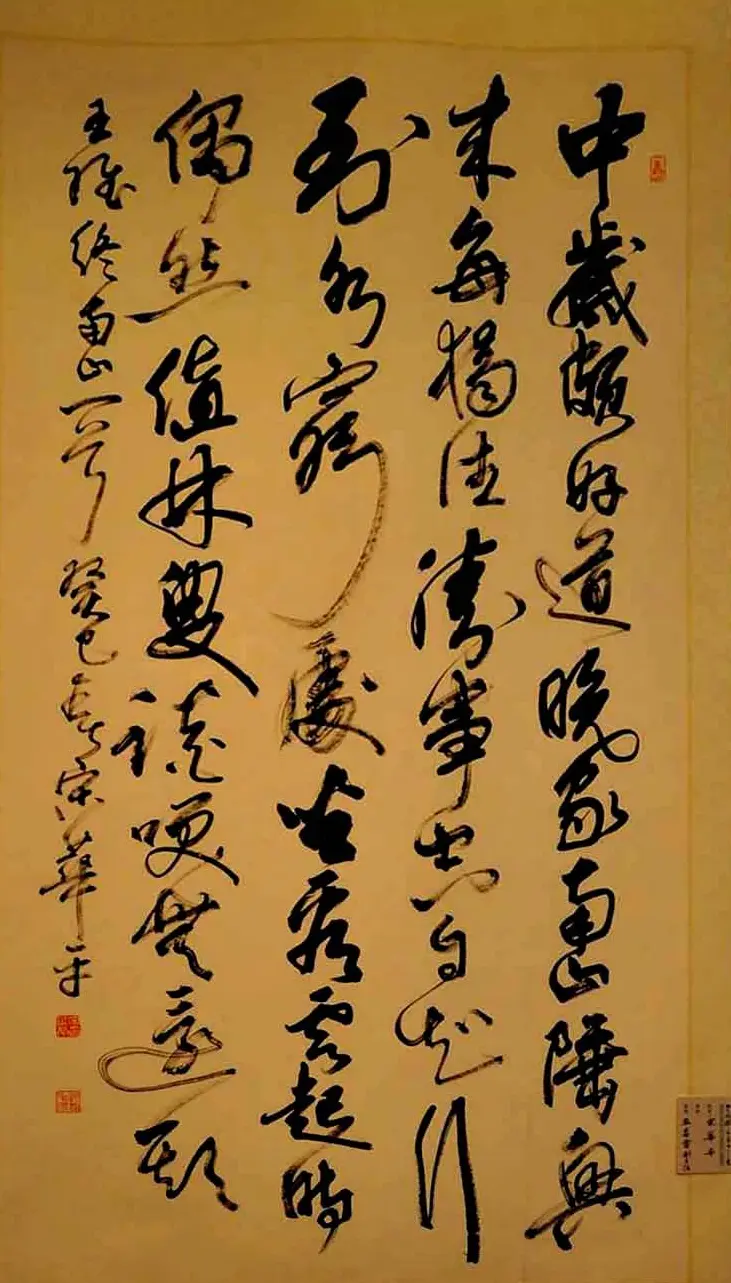 中歲頗好道晚家南山陲興
来每獨往勝事空自知行
到水窮處坐看雲起時
偶然值林叟談咲無還期
王維終南山一首癸巳春宋華平